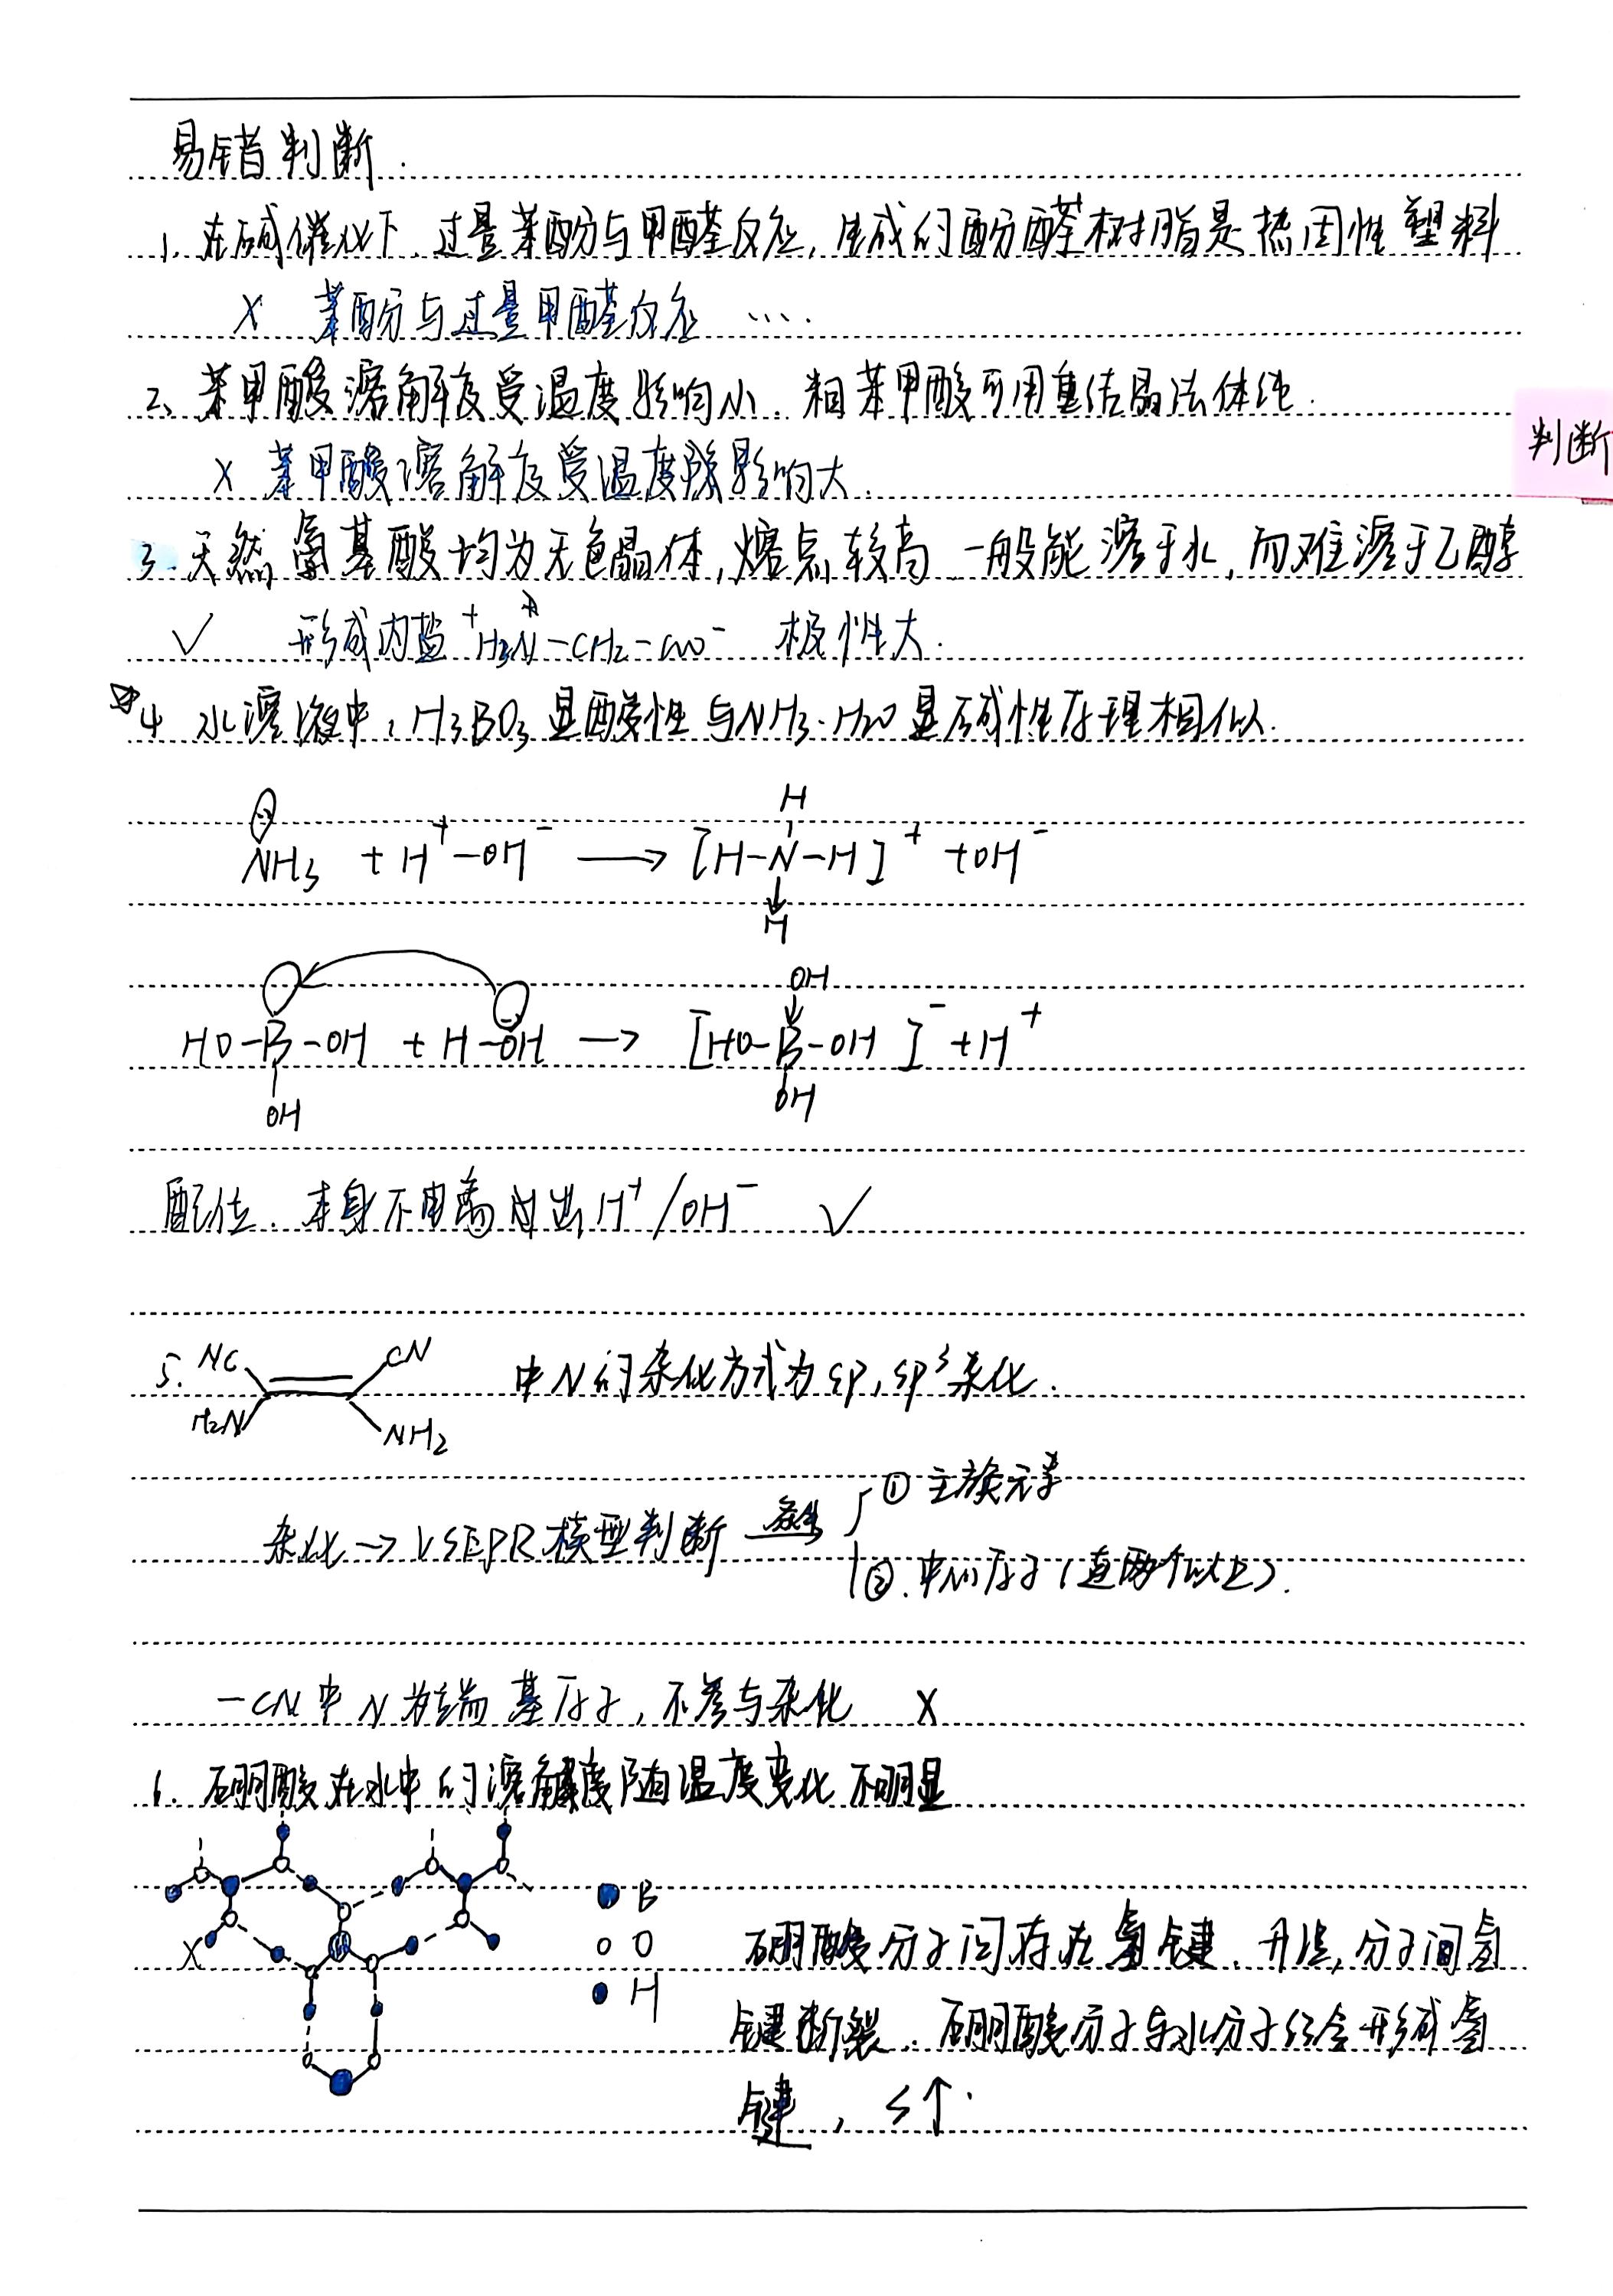 易错判断.
1. 在碱催化下,过量苯酚与甲醛反应,生成的酚醛树脂是热固性塑料
X 苯酚与过量甲醛反应 ….
2、苯甲酸溶解度受温度影响小,粗苯甲酸可用重结晶法体纯.
判断
X 苯甲酸溶解度受温度影响大.
3. 天然氨基酸均为无色晶体,熔点较高 一般能溶于水,而难溶于乙醇
✓ 形成内盐 ⁺H₃N-CH₂-COO⁻ 极性大.
☆4 水溶液中,H₃BO₃显酸性与NH₃·H₂O显碱性原理相似.
NH₃ + H⁺-OH⁻ ⟶ [H-N-H]⁺ + OH⁻
H
H
HO-B-OH + H-OH → [HO-B-OH]⁻ + H⁺
OH
OH
OH
配位.本身不电离出H⁺/OH⁻ ✓
5. NC CN 中N的杂化方式为sp,sp³杂化.
H₂N NH₂
杂化→VSEPR模型判断 ① 主族元素
②.中心原子(连两个以上).
-CN中N为端基原子,不参与杂化 X
6. 硼酸在水中的溶解度随温度变化不明显
X
B
O
H
硼酸分子间存在氢键.升温,分子间氢
键断裂.硼酸分子与水分子结合形成氢
键,S↑.